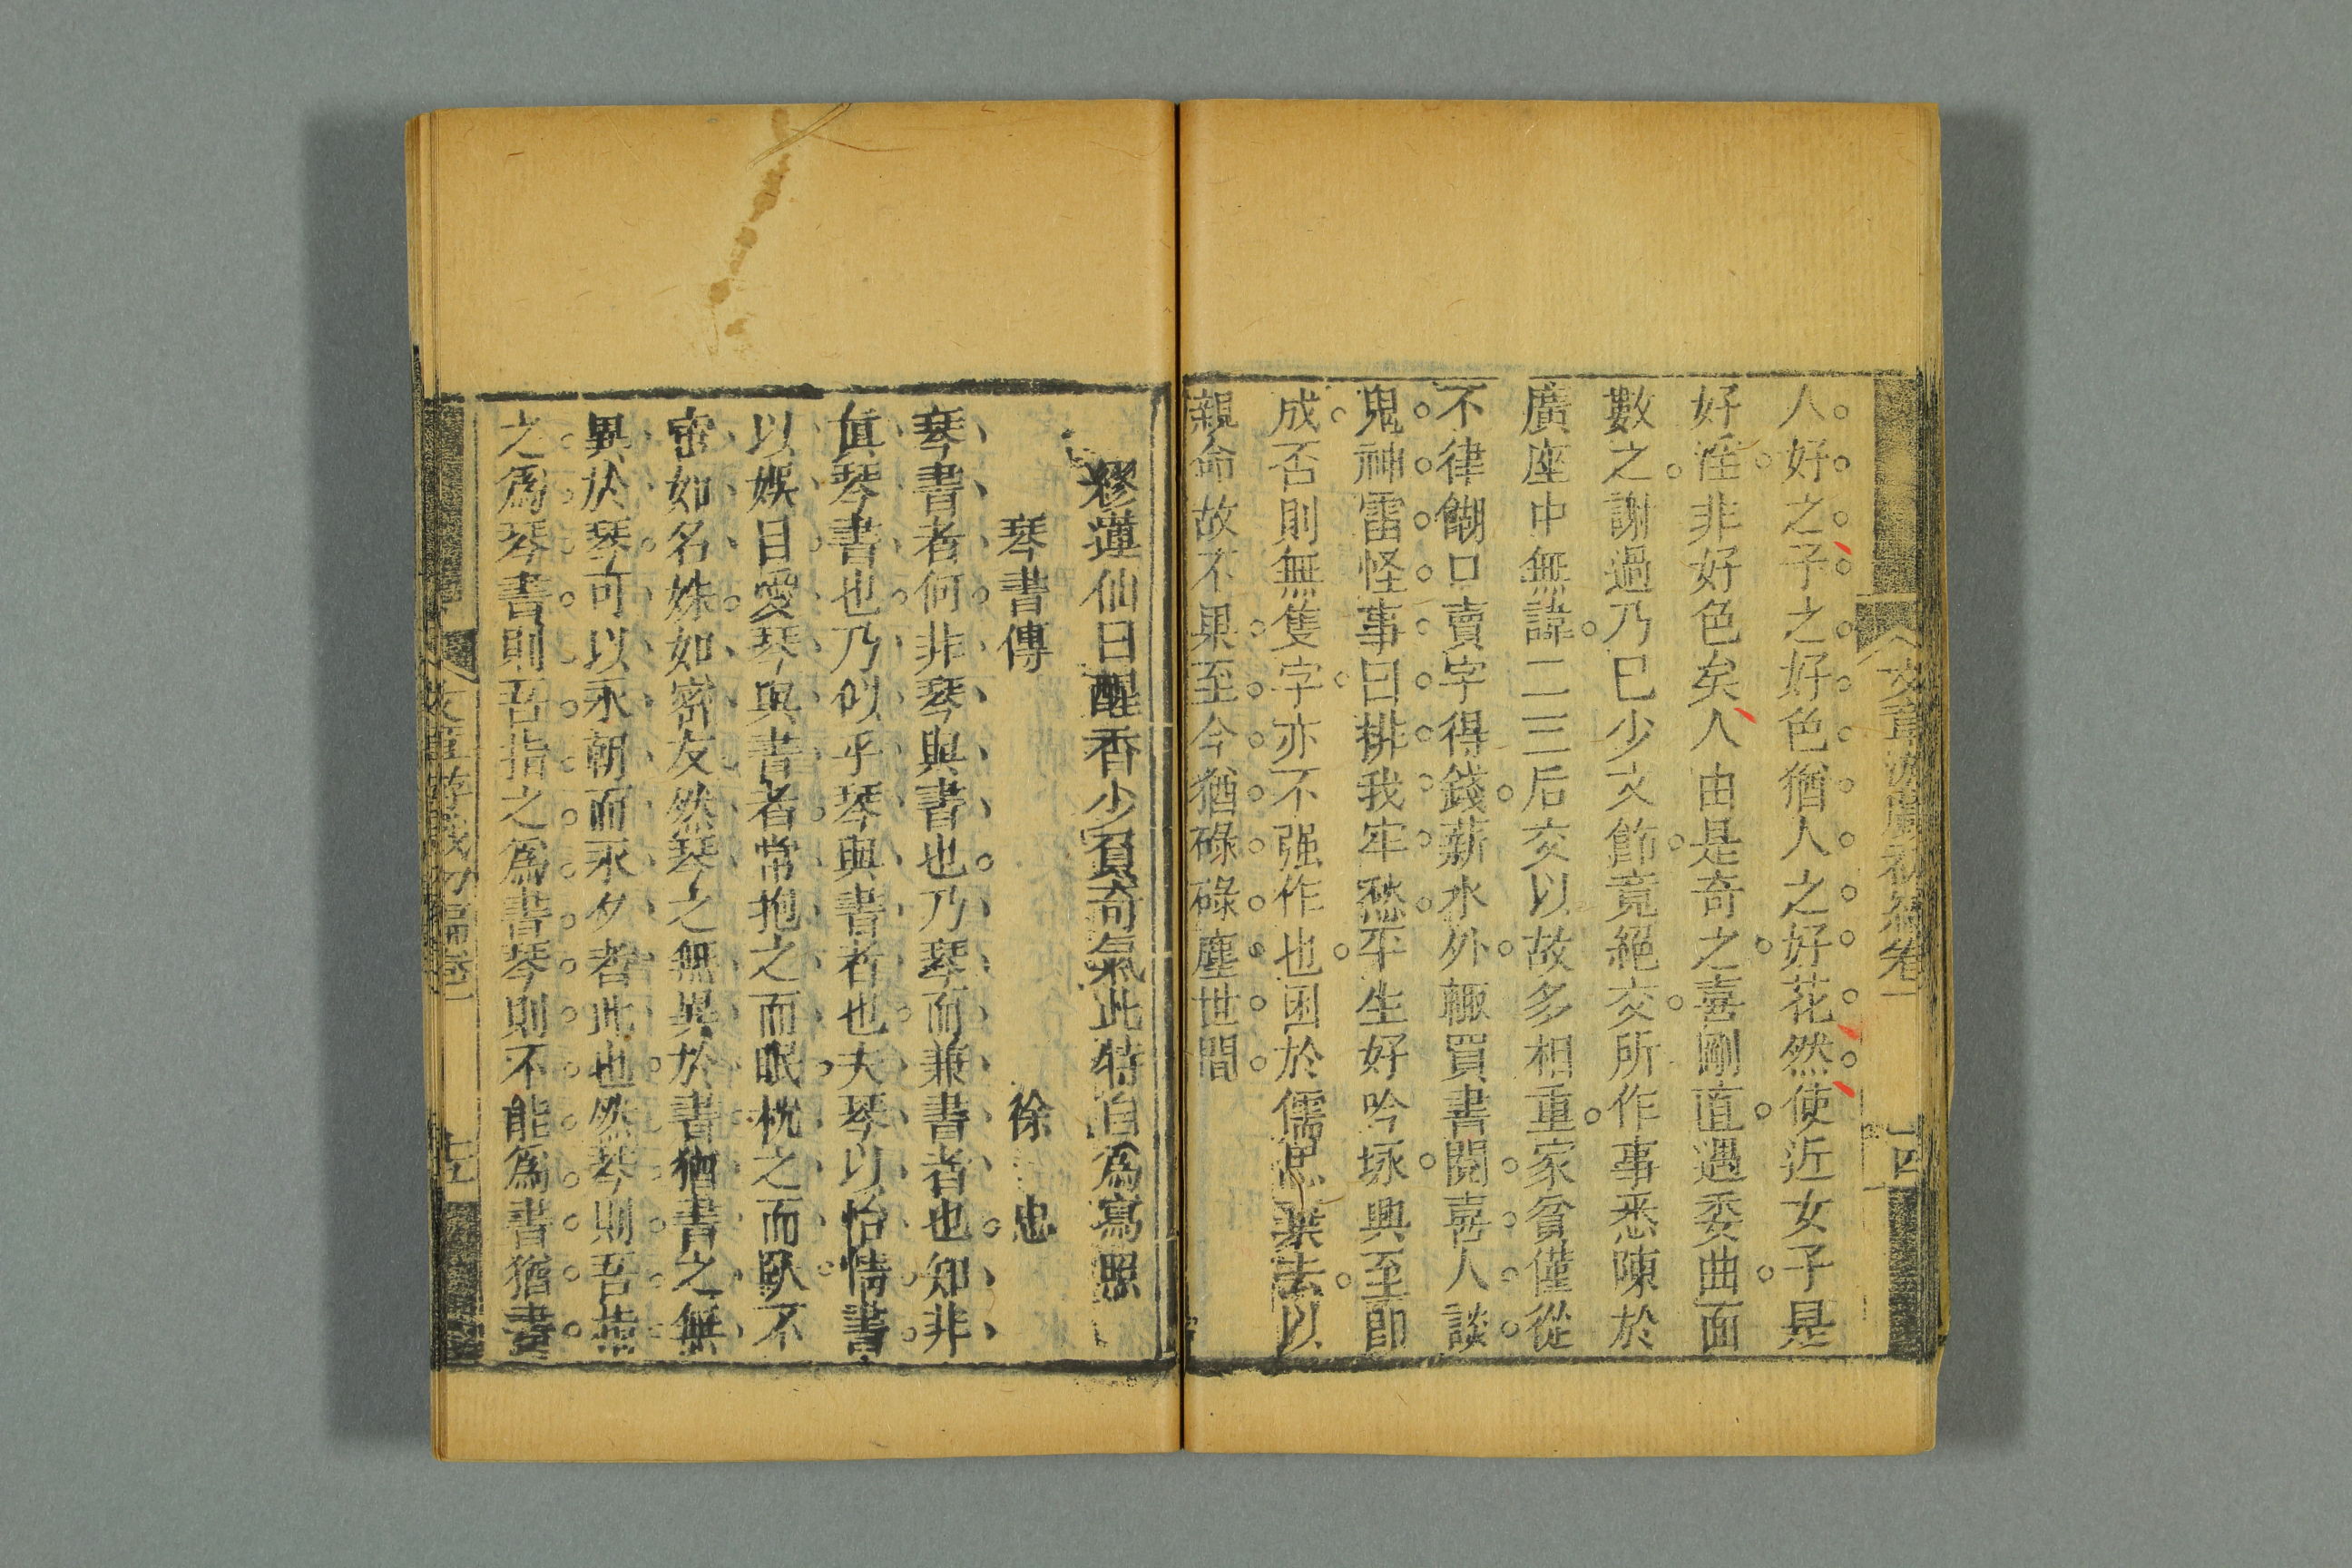 文章游戲初編卷一
十四
人好之予之好色猶人之好花然使近女子是
好淫非好色矣人由是奇之喜剛直遇委曲面
數之謝過乃已少文飾竟絕交所作事悉陳於
廣座中無諱二三后交以故多相重家貧僅從
不律餬口賣字得錢薪水外輒買書閱喜人談
鬼神雷怪事曰排我牢愁平生好吟咏興至即
成否則無隻字亦不强作也困於儒思棄去以
親命故不果至今猶碌碌塵世間
繆蓮仙曰醒香少負奇氣此特自爲寫照
琴書傳 徐忠
琴書者何非琴與書也乃琴而兼書者也知非
眞琴書也乃似乎琴與書者也夫琴以怡情書
以娛目愛琴與書者常抱之而眠枕之而臥不
啻如名姝如密友然琴之無異於書猶書之無
異於琴可以永朝而永夕者此也然琴則吾
之爲琴書則吾指之爲書琴則不能爲書猶書
文章游戲初編卷一
十五